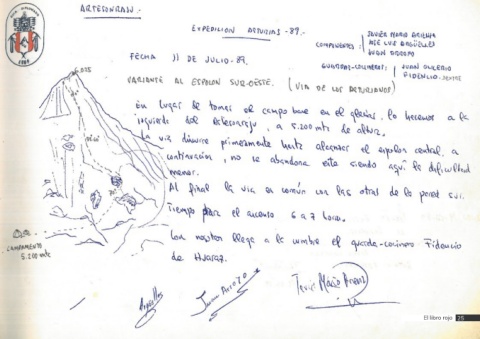 ARTESONRAJU.-
EXPEDICION ASTURIAS-89.-
COMPONENTES: JAVIER MARIO
JOSE LUIS ARGÜELLES
JUAN ARROJO
FECHA 11 DE JULIO-89.
GUARDAS-COCINEROS: JUAN
FIDENCIO
VARIANTE AL ESPOLON SUR-OESTE. (VIA DE LOS ASTURIANOS)
En lugar de tomar el campo base en el glaciar, lo hacemos a la
izquierda del Artesonraju, a 5.200 mts de altura.
La via discurre primeramente hasta alcanzar el espolon central, a
continuación, no se abandona este siendo aquí la dificultad
menor.
Al final la via es común con las otras de la pared sur.
Tiempo para el ascenso 6 a 7 horas.
Con nosotros llega a la cumbre el guarda-cocinero Fidencio
de Huaraz.
6.025
CAMPAMENTO
5.200 mts
Argüelles
Juan Arrojo
Javier Mario
El libro rojo 25